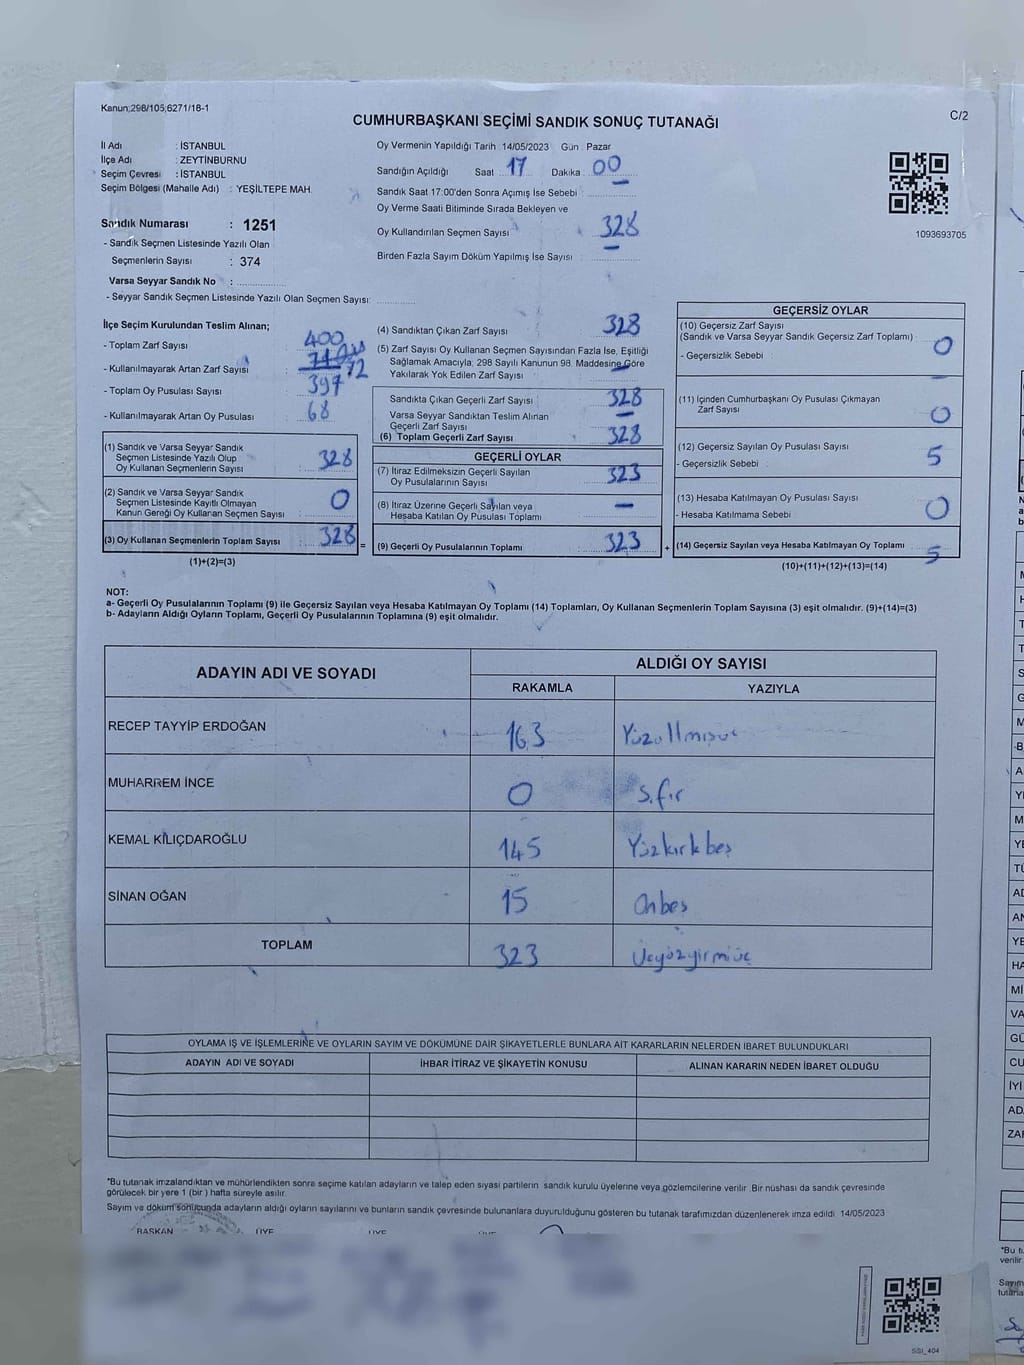 Kanun;298/105;6271/18-1
C/2
CUMHURBAŞKANI SEÇİMİ SANDIK SONUÇ TUTANAĞI
İl Adı : İSTANBUL
İlçe Adı : ZEYTİNBURNU
Seçim Çevresi : İSTANBUL
Seçim Bölgesi (Mahalle Adı) : YEŞİLTEPE MAH.
Sandık Numarası : 1251
- Sandık Seçmen Listesinde Yazılı Olan
Seçmenlerin Sayısı : 374
Varsa Seyyar Sandık No :
- Seyyar Sandık Seçmen Listesinde Yazılı Olan Seçmen Sayısı:
Oy Vermenin Yapıldığı Tarih 14/05/2023 Gün Pazar
Sandığın Açıldığı Saat 17 Dakika 00
Sandık Saat 17:00'den Sonra Açımış İse Sebebi -
Oy Verme Saati Bitiminde Sırada Bekleyen ve
Oy Kullandırılan Seçmen Sayısı 328
Birden Fazla Sayım Döküm Yapılmış İse Sayısı -
1093693705
İlçe Seçim Kurulundan Teslim Alınan;
- Toplam Zarf Sayısı 400
- Kullanılmayarak Artan Zarf Sayısı 72
- Toplam Oy Pusulası Sayısı 397
- Kullanılmayarak Artan Oy Pusulası 68
(1) Sandık ve Varsa Seyyar Sandık
Seçmen Listesinde Yazılı Olup
Oy Kullanan Seçmenlerin Sayısı 328
(2) Sandık ve Varsa Seyyar Sandık
Seçmen Listesinde Kayıtlı Olmayan
Kanun Gereği Oy Kullanan Seçmen Sayısı 0
(3) Oy Kullanan Seçmenlerin Toplam Sayısı 328 =
(1)+(2)=(3)
(4) Sandıktan Çıkan Zarf Sayısı 328
(5) Zarf Sayısı Oy Kullanan Seçmen Sayısından Fazla İse, Eşitliği
Sağlamak Amacıyla; 298 Sayılı Kanunun 98. Maddesine Göre
Yakılarak Yok Edilen Zarf Sayısı -
Sandıkta Çıkan Geçerli Zarf Sayısı 328
Varsa Seyyar Sandıktan Teslim Alınan
Geçerli Zarf Sayısı -
(6) Toplam Geçerli Zarf Sayısı 328
GEÇERLİ OYLAR
(7) İtiraz Edilmeksizin Geçerli Sayılan
Oy Pusulalarının Sayısı 323
(8) İtiraz Üzerine Geçerli Sayılan veya
Hesaba Katılan Oy Pusulası Toplamı -
(9) Geçerli Oy Pusulalarının Toplamı 323 +
GEÇERSİZ OYLAR
(10) Geçersiz Zarf Sayısı
(Sandık ve Varsa Seyyar Sandık Geçersiz Zarf Toplamı) 0
- Geçersizlik Sebebi -
(11) İçinden Cumhurbaşkanı Oy Pusulası Çıkmayan
Zarf Sayısı 0
(12) Geçersiz Sayılan Oy Pusulası Sayısı 5
- Geçersizlik Sebebi :
(13) Hesaba Katılmayan Oy Pusulası Sayısı 0
- Hesaba Katılmama Sebebi :
(14) Geçersiz Sayılan veya Hesaba Katılmayan Oy Toplamı 5
(10)+(11)+(12)+(13)=(14)
NOT:
a- Geçerli Oy Pusulalarının Toplamı (9) ile Geçersiz Sayılan veya Hesaba Katılmayan Oy Toplamı (14) Toplamları, Oy Kullanan Seçmenlerin Toplam Sayısına (3) eşit olmalıdır. (9)+(14)=(3)
b- Adayların Aldığı Oyların Toplamı, Geçerli Oy Pusulalarının Toplamına (9) eşit olmalıdır.
ADAYIN ADI VE SOYADI
ALDIĞI OY SAYISI
RAKAMLA YAZIYLA
RECEP TAYYİP ERDOĞAN 163
MUHARREM İNCE 0 Sıfır
KEMAL KILIÇDAROĞLU 145 Yüzkırkbeş
SİNAN OĞAN 15 Onbeş
TOPLAM 323 Üçyüzyirmiüç
OYLAMA İŞ VE İŞLEMLERİNE VE OYLARIN SAYIM VE DÖKÜMÜNE DAİR ŞİKAYETLERLE BUNLARA AİT KARARLARIN NELERDEN İBARET BULUNDUKLARI
ADAYIN ADI VE SOYADI İHBAR İTİRAZ VE ŞİKAYETİN KONUSU ALINAN KARARIN NEDEN İBARET OLDUĞU
*Bu tutanak imzalandıktan ve mühürlendikten sonra seçime katılan adayların ve talep eden siyasi partilerin sandık kurulu üyelerine veya gözlemcilerine verilir. Bir nüshası da sandık çevresinde
görülecek bir yere 1 (bir) hafta süreyle asılır.
Sayım ve döküm sonucunda adayların aldığı oyların sayılarını ve bunların sandık çevresinde bulunanlara duyurulduğunu gösteren bu tutanak tarafımızdan düzenlenerek imza edildi. 14/05/2023
BAŞKAN ÜYE ÜYE ÜYE
SSI_404